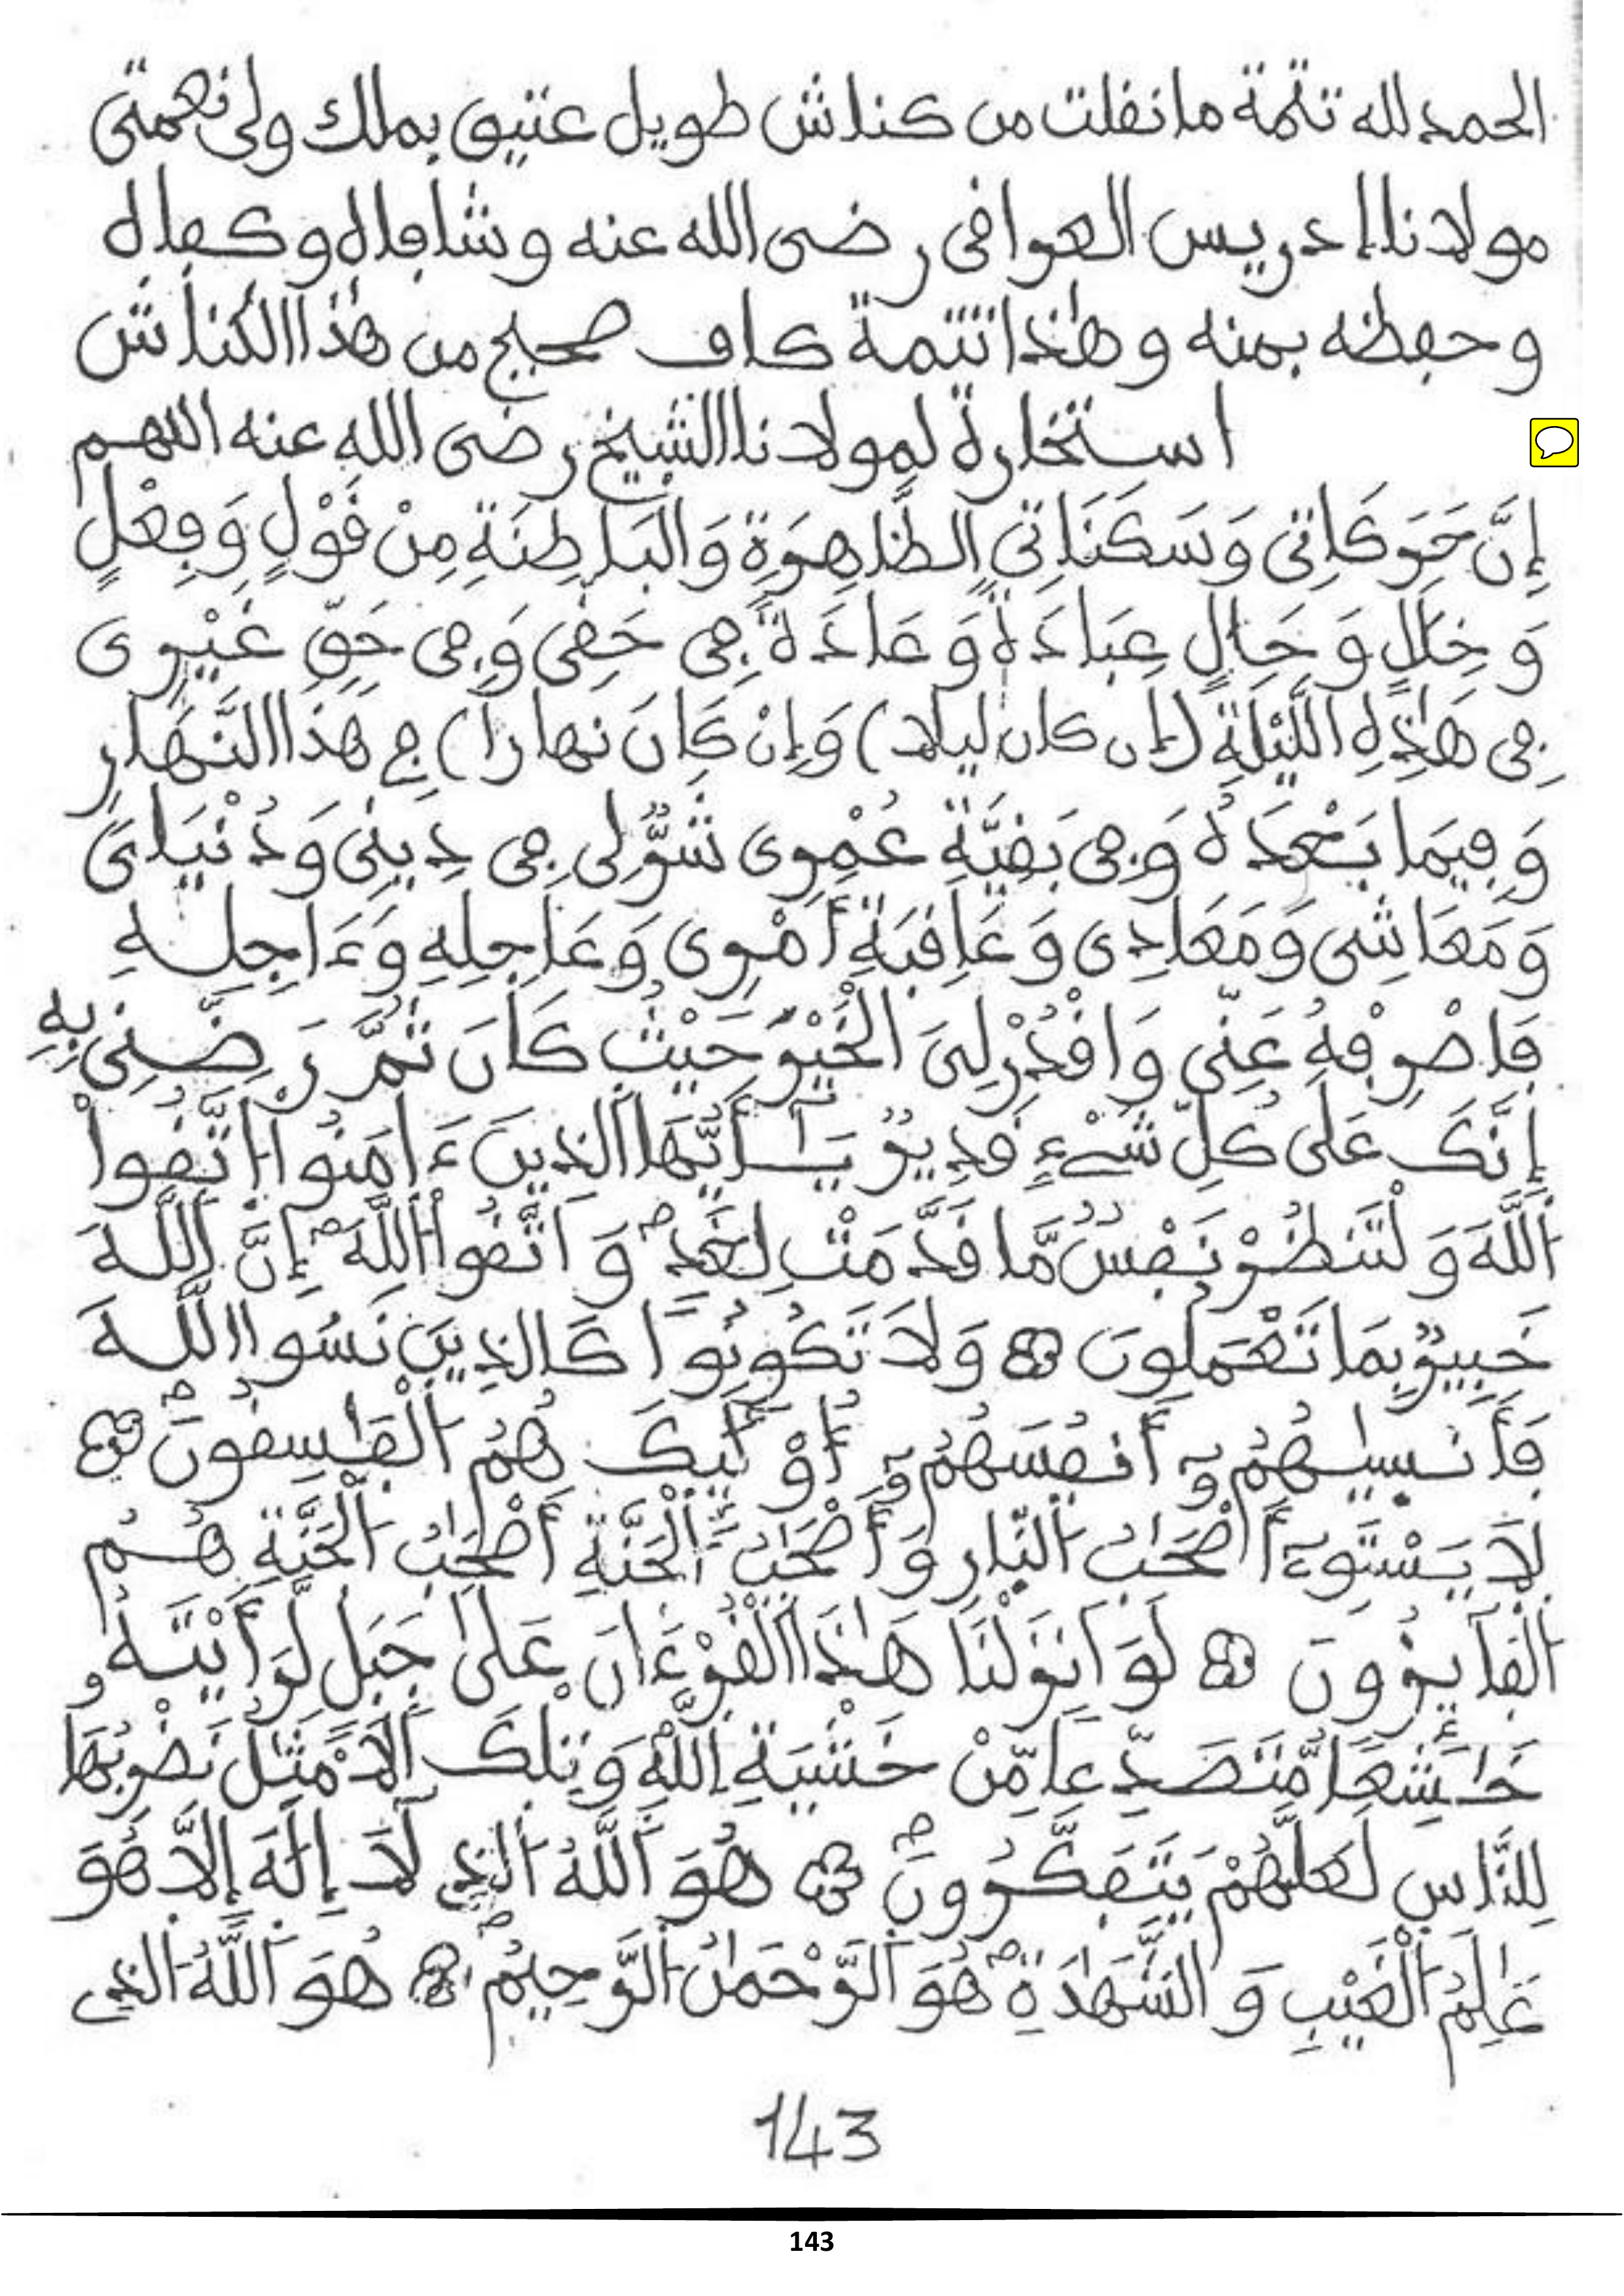 الحمد لله تتمة ما نقلت من كناش طويل عتيق بملك ولي نعمتي
مولانا إدريس العراقي رضى الله عنه وشافاه وكفاه
وحفظه بمنه وهٰذا تتمة كاف صحيح من هٰذا الكناش
استخارة لمولانا الشيخ رضى الله عنه اللهم
إِنَّ حَرَكَاتِي وَسَكَنَاتِي الظَّاهِرَةِ وَالْبَاطِنَةِ مِنْ قَوْلٍ وَفِعْلٍ
وَخِلَالٍ وَحَالٍ عِبَادَةً وَعَادَةً فِى حَقِّى وَفِى حَقِّ غَيْرِى
فِى هَٰذِهِ اللَّيْلَةِ (إن كان ليلا) وَإِنْ كَانَ نهارا) فِى هَذَا النَّهَارِ
وَفِيمَا بَعْدَهُ وَفِى بَقِيَّةِ عُمْرِى شَرٌّ لِى فِى دِينِى وَدُنْيَاىَ
وَمَعَاشِى وَمَعَادِى وَعَاقِبَةِ أَمْرِى وَعَاجِلِهِ وَءَاجِلِهِ
فَاصْرِفْهُ عَنِّى وَاقْدُرْ لِىَ الْخَيْرَ حَيْثُ كَانَ ثُمَّ رَضِّنِى بِهِ
إِنَّكَ عَلَى كُلِّ شَىْءٍ قَدِيرٌ يَـٰٓأَيُّهَا الذِينَ ءَامَنُوا اتَّقُوا
اَللَّهَ وَلْتَنظُرْ نَفْسٌ مَّا قَدَّمَتْ لِغَدٍ وَاتَّقُوا اللَّهَ إِنَّ اَللَّهَ
خَبِيرٌ بِمَا تَعْمَلُونَ وَلَا تَكُونُوا كَالذِينَ نَسُوا اللَّهَ
فَأَنسيٰهُمُۥٓ أَنفُسَهُمُۥٓ أُوْلَـٰٓئِكَ هُمُ الْفَٰسِقُونَ
لَا يَسْتَوِىٓ أَصْحَٰبُ النّارِ وَأَصْحَٰبُ الْجَنَّةِ أَصْحَٰبُ الْجَنَّةِ هُمُ
الْفَآئِزُونَ لَوَ اَنزَلْنَا هَٰذَا الْقُرْءَانَ عَلَىٰ جَبَلٍ لَّرَأَيْتَهُۥ
خَٰشِعًا مُّتَصَدِّعًا مِّنْ خَشْيَةِ اِللَّهِ وَتِلْكَ اَلَامْثَٰلُ نَضْرِبُهَا
لِلنَّاسِ لَعَلَّهُمْ يَتَفَكَّرُونَ هُوَ اَللَّهُ الذِى لَآ إِلَٰهَ إِلَّا هُوَ
عَٰلِمُ الْغَيْبِ وَالشَّهَٰدَةِ هُوَ اَلرَّحْمَٰنُ الرَّحِيمُ هُوَ اَللَّهُ الذِى
143
143